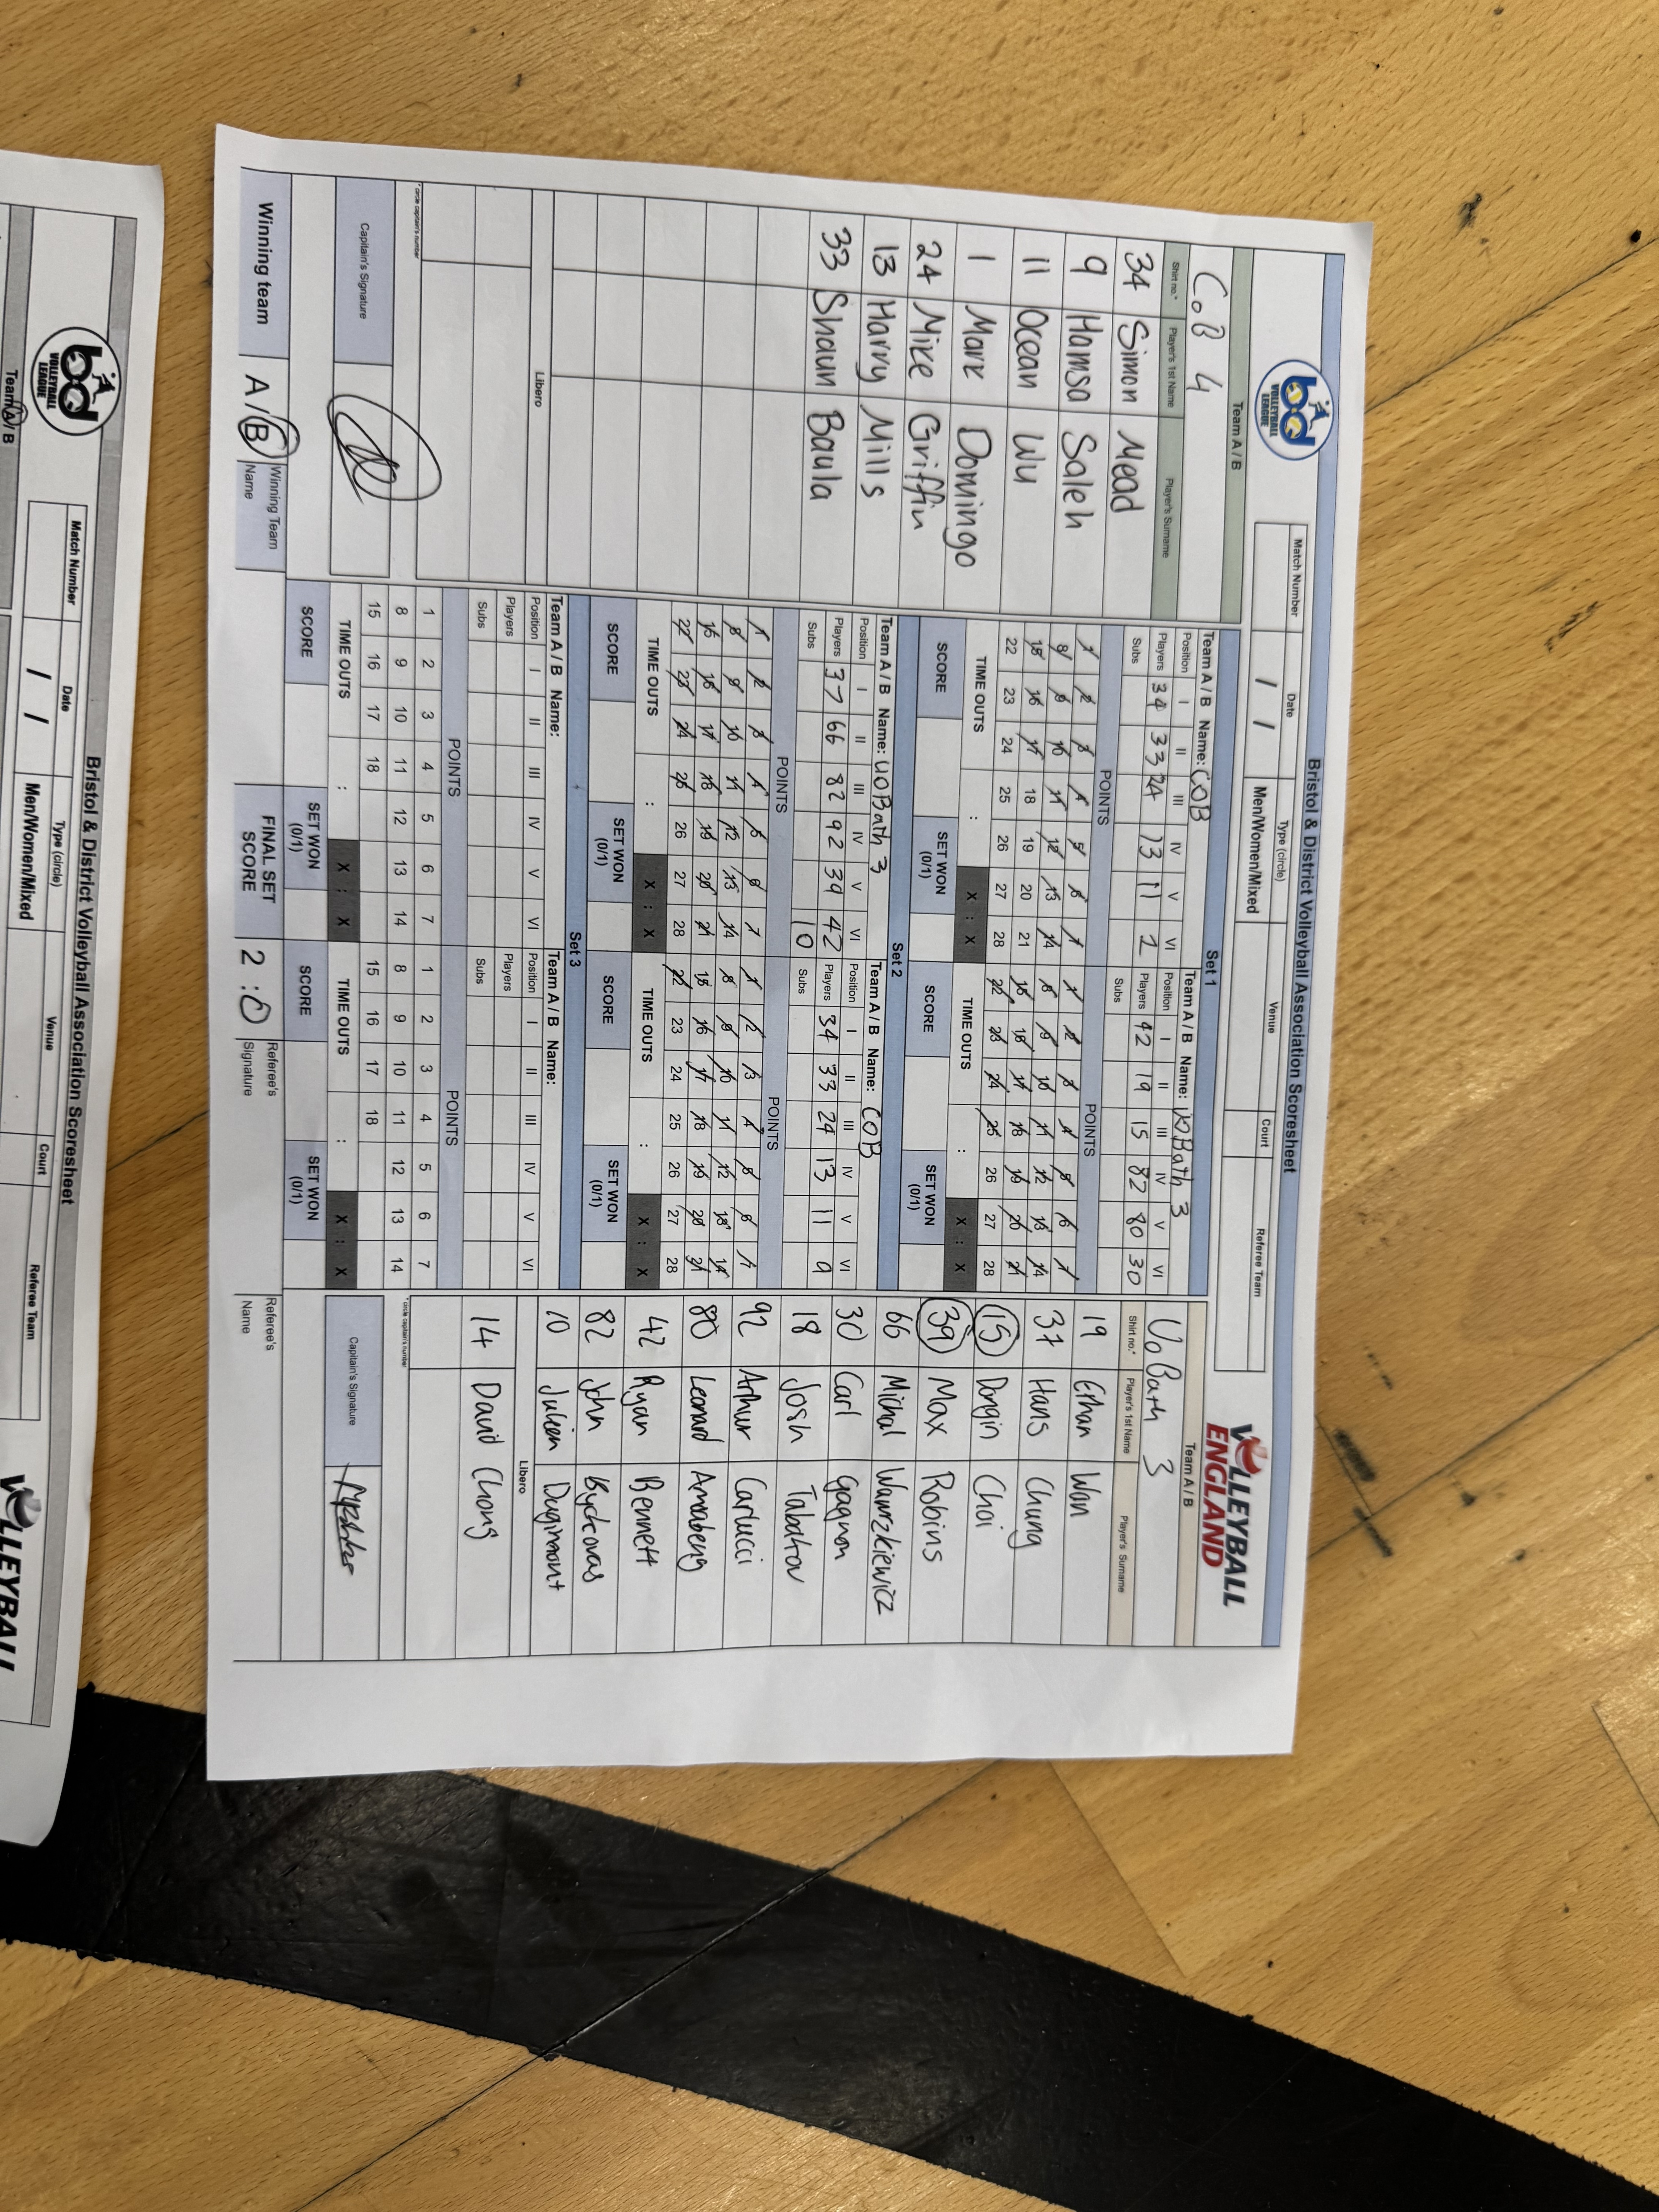 Bristol & District Volleyball Association Scoresheet
bd
VOLLEYBALL
LEAGUE
Match Number
Date
Type (circle)
Venue
Court
Referee Team
/ /
Men/Women/Mixed
VOLLEYBALL
ENGLAND
Team A / B
CoB 4
Shirt no.*
Player's 1st Name
Player's Surname
34 Simon Mead
9 Hamsa Saleh
11 Ocean Wu
1 Mark Domingo
24 Mike Griffin
13 Harry Mills
33 Shaun Baula
Libero
* circle captain's number
Captain's Signature
Set 1
Team A / B Name: COB
Position I II III IV V VI
Players 34 33 24 13 11 1
Subs
POINTS
1 2 3 4 5 6 7
8 9 10 11 12 13 14
15 16 17 18 19 20 21
22 23 24 25 26 27 28
TIME OUTS : X : X
SCORE
SET WON
(0/1)
Team A / B Name: UOBath 3
Position I II III IV V VI
Players 42 19 15 82 80 30
Subs
POINTS
1 2 3 4 5 6 7
8 9 10 11 12 13 14
15 16 17 18 19 20 21
22 23 24 25 26 27 28
TIME OUTS : X : X
SCORE
SET WON
(0/1)
Set 2
Team A / B Name: UOBath 3
Position I II III IV V VI
Players 37 66 82 92 39 42
Subs 10
POINTS
1 2 3 4 5 6 7
8 9 10 11 12 13 14
15 16 17 18 19 20 21
22 23 24 25 26 27 28
TIME OUTS : X : X
SCORE
SET WON
(0/1)
Team A / B Name: COB
Position I II III IV V VI
Players 34 33 24 13 11 9
Subs
POINTS
1 2 3 4 5 6 7
8 9 10 11 12 13 14
15 16 17 18 19 20 21
22 23 24 25 26 27 28
TIME OUTS : X : X
SCORE
SET WON
(0/1)
Set 3
Team A / B Name:
Position I II III IV V VI
Players
Subs
POINTS
1 2 3 4 5 6 7
8 9 10 11 12 13 14
15 16 17 18
TIME OUTS : X : X
SCORE
SET WON
(0/1)
Team A / B Name:
Position I II III IV V VI
Players
Subs
POINTS
1 2 3 4 5 6 7
8 9 10 11 12 13 14
15 16 17 18
TIME OUTS : X : X
SCORE
SET WON
(0/1)
Team A / B
Uo Bath 3
Shirt no.*
Player's 1st Name
Player's Surname
19 Ethan Wan
37 Hans Chung
15 Dongin Choi
39 Max Robins
66 Michal Wawrzkiewicz
30 Carl Gagnon
18 Josh Tabatrov
92 Arthur Carlucci
80 Leonard Amoabeng
42 Ryan Bennett
82 John
10 Julien Duginmont
Libero
14 David Chong
* circle captain's number
Captain's Signature
Winning team
A / B
Winning Team
Name
FINAL SET
SCORE
2 : 0
Referee's
Signature
Referee's
Name
Bristol & District Volleyball Association Scoresheet
bd
VOLLEYBALL
LEAGUE
Match Number
Date
Type (circle)
Venue
Court
Referee Team
/ /
Men/Women/Mixed
VOLLEYBALL
Team A / B